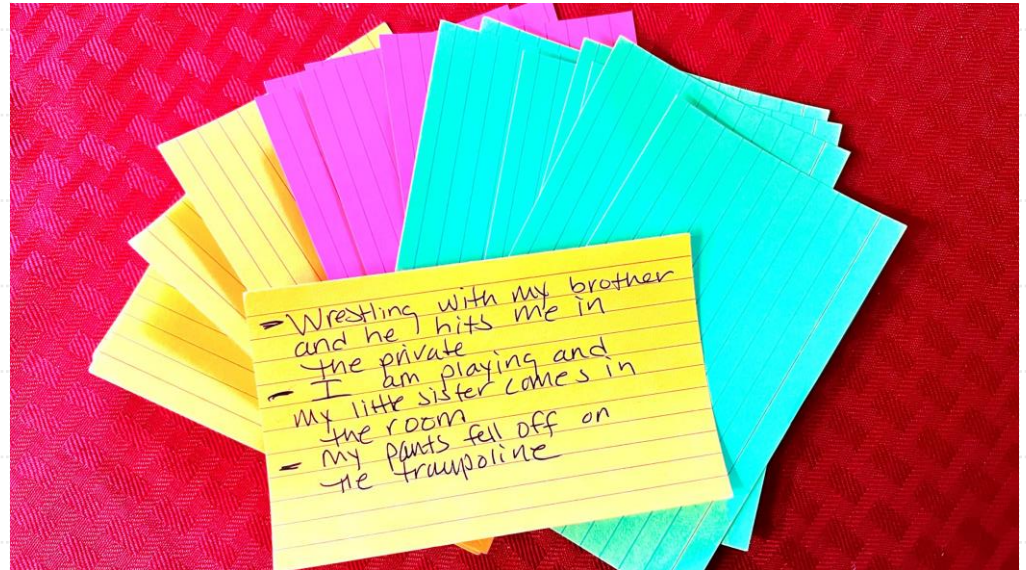 - Wrestling with my brother
and he hits me in
the private
- I am playing and
my little sister comes in
the room
- my pants fell off on
the trampoline